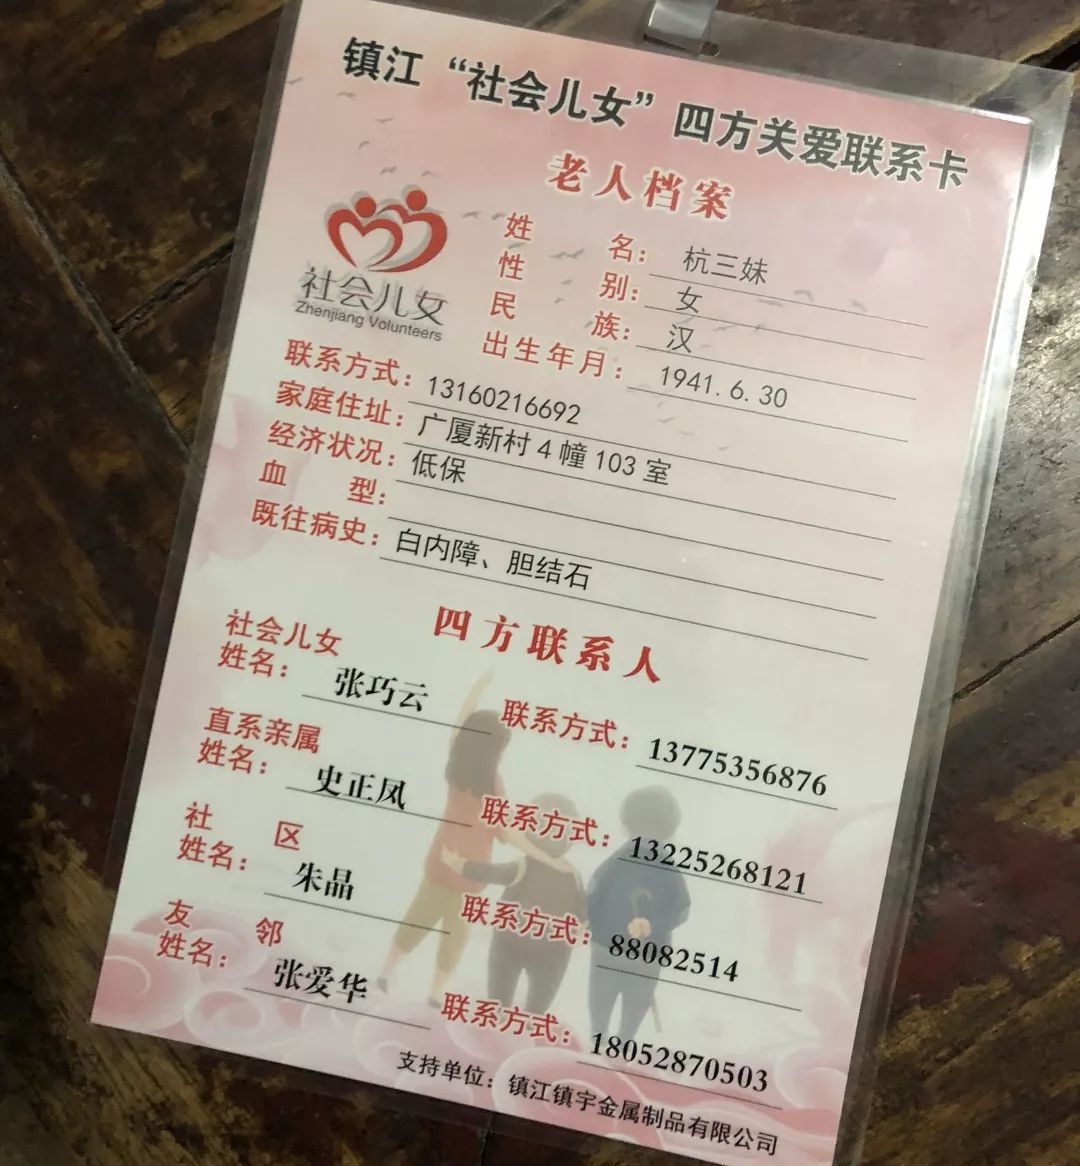 镇江“社会儿女”四方关爱联系卡
老人档案
社会儿女
Zhenjiang Volunteers
姓 名： 杭三妹
性 别： 女
民 族： 汉
出生年月： 1941.6.30
联系方式： 13160216692
家庭住址： 广厦新村4幢103室
经济状况： 低保
血 型：
既往病史： 白内障、胆结石
四方联系人
社会儿女
姓名： 张巧云 联系方式： 13775356876
直系亲属
姓名： 史正凤 联系方式： 13225268121
社 区
姓名： 朱晶 联系方式： 88082514
友 邻
姓名： 张爱华 联系方式： 18052870503
支持单位：镇江镇宇金属制品有限公司